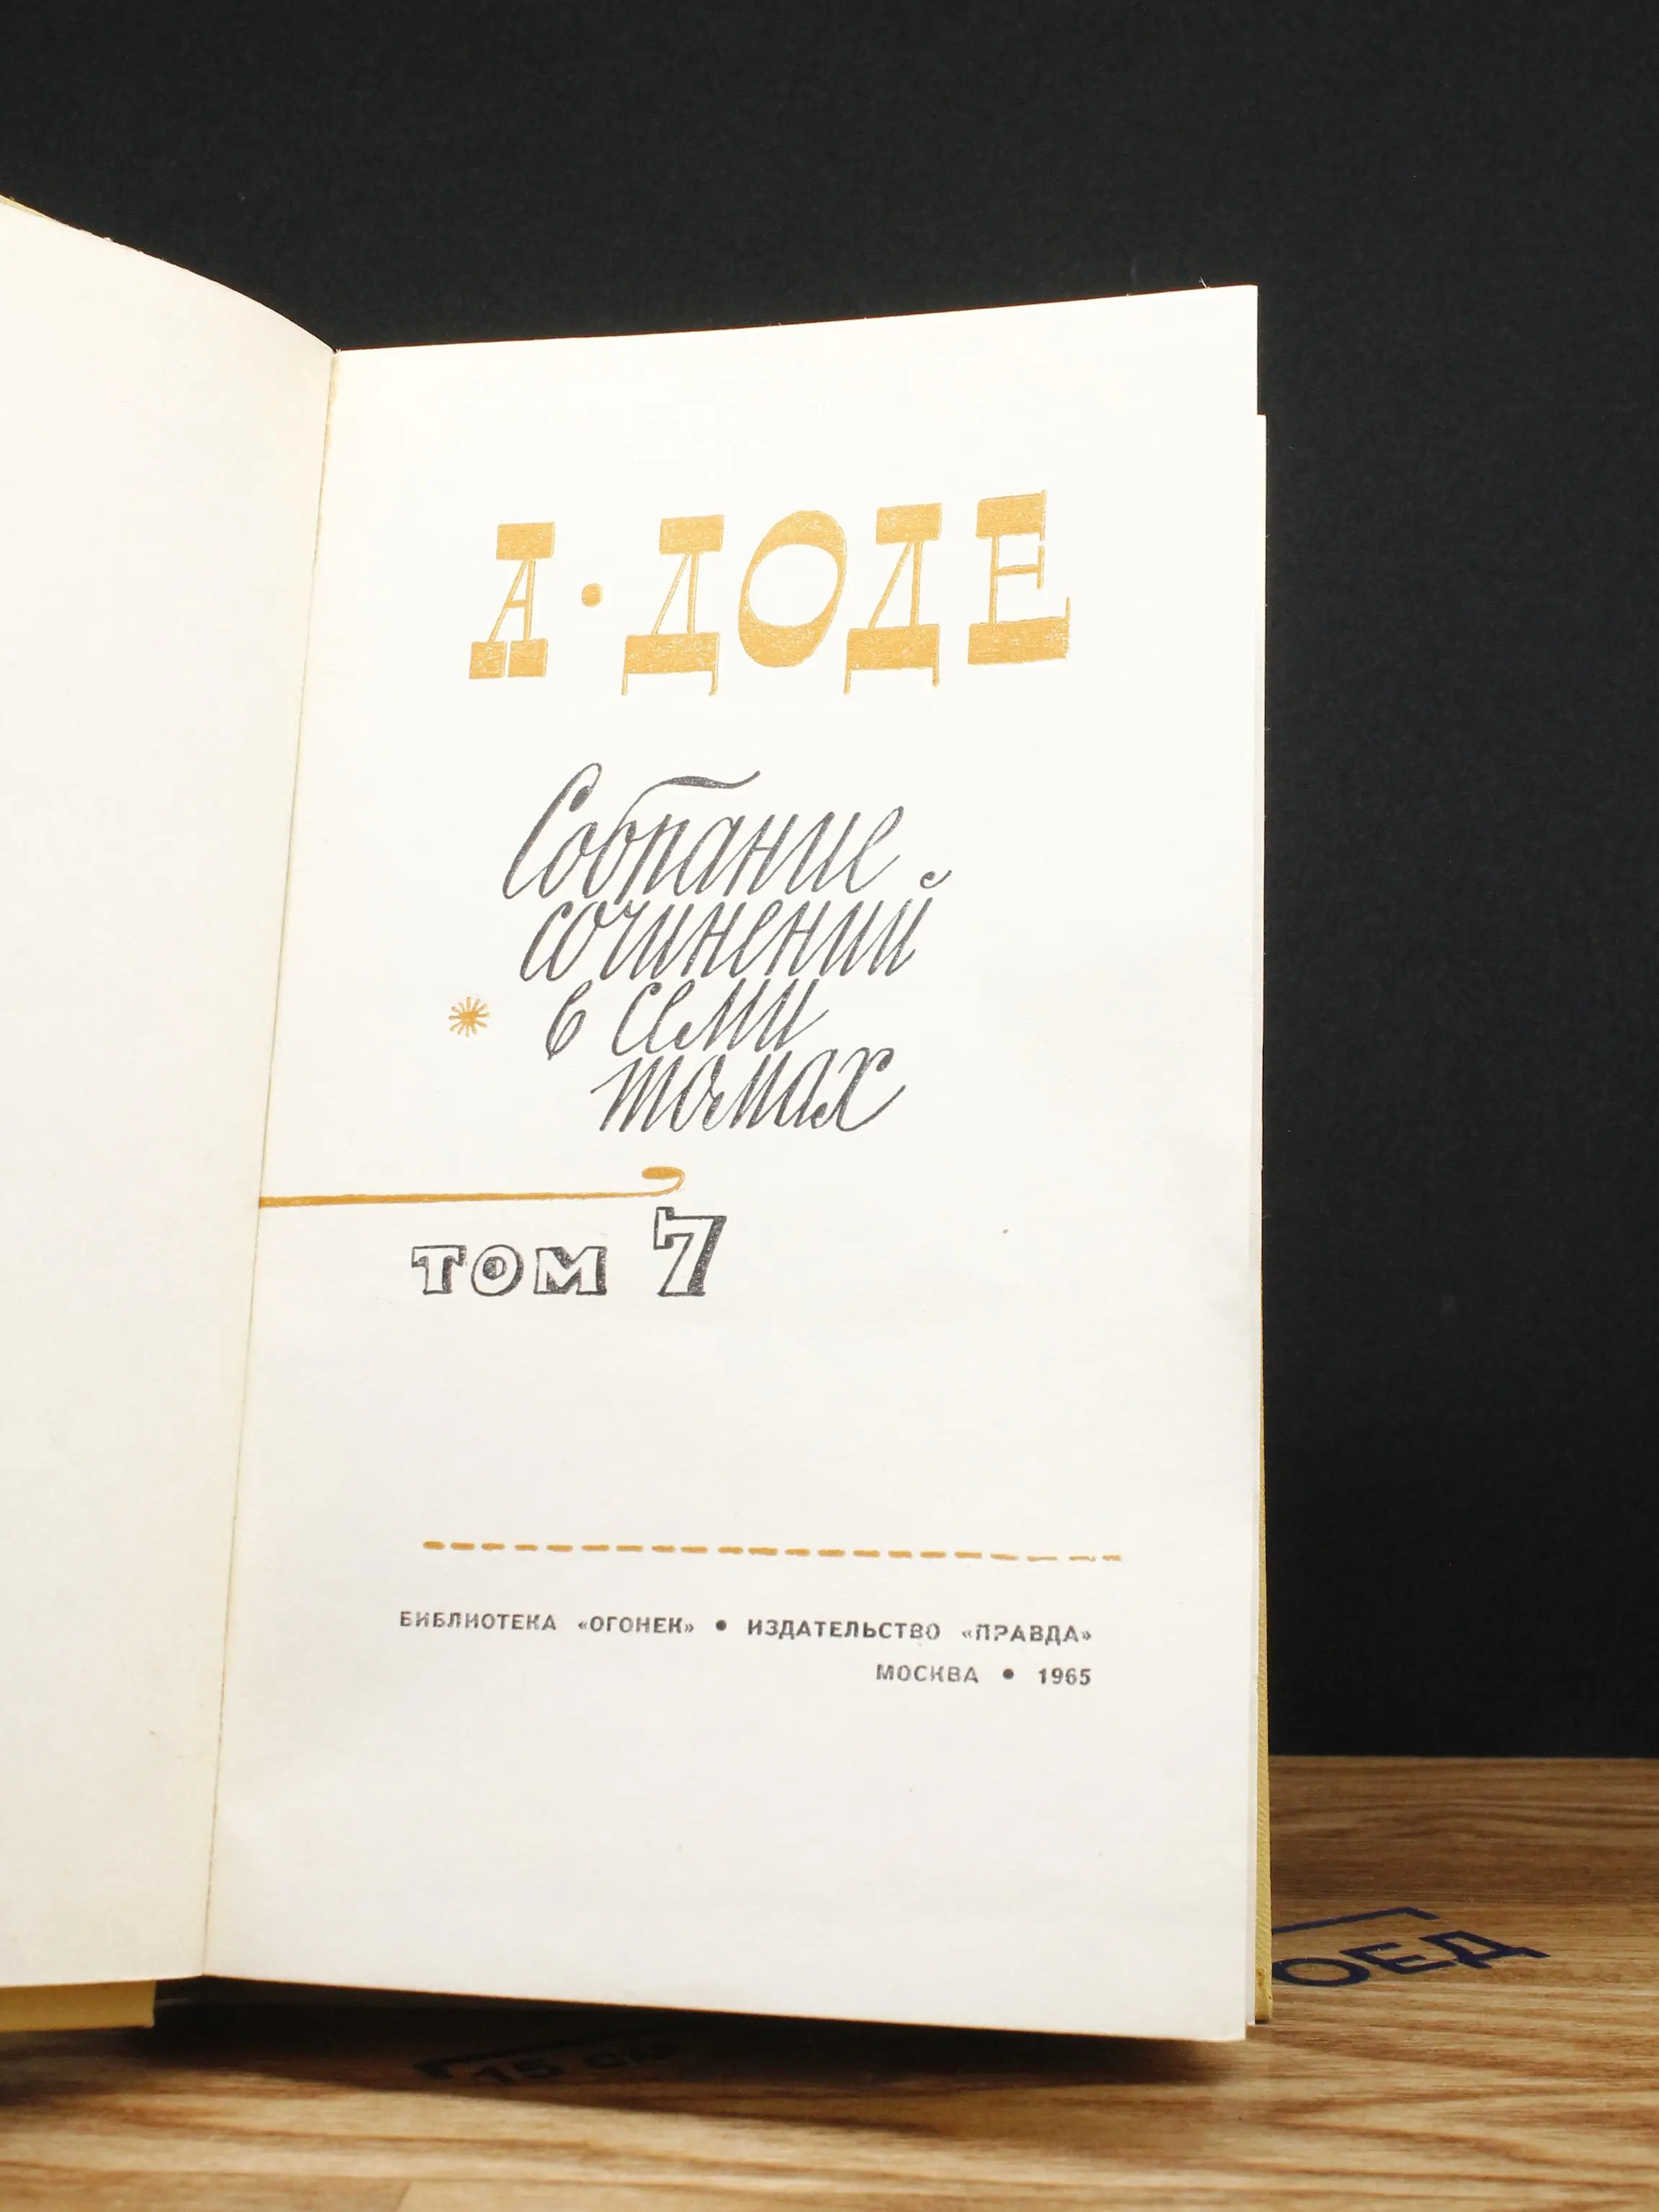 А·ДОДЕ
Собрание
сочинений
в семи
томах
ТОМ 7
БИБЛИОТЕКА «ОГОНЕК» • ИЗДАТЕЛЬСТВО «ПРАВДА»
МОСКВА • 1965
15 см